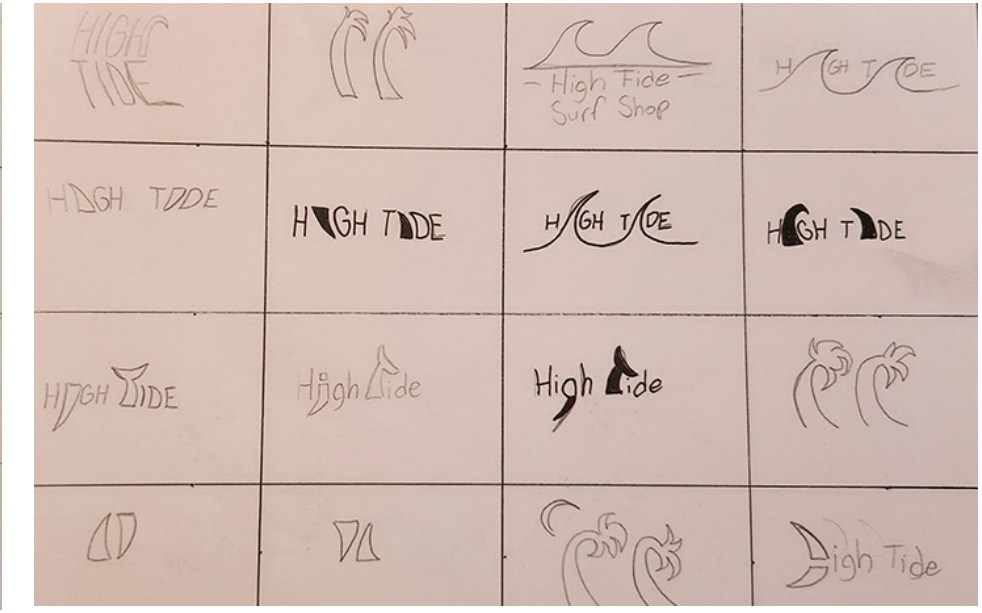 HIGH
TIDE
- High Tide -
Surf Shop
HIGH TIDE
HIGH TIDE
HIGH TIDE
HIGH TIDE
HIGH TIDE
HIGH TIDE
High Tide
High Tide
High Tide